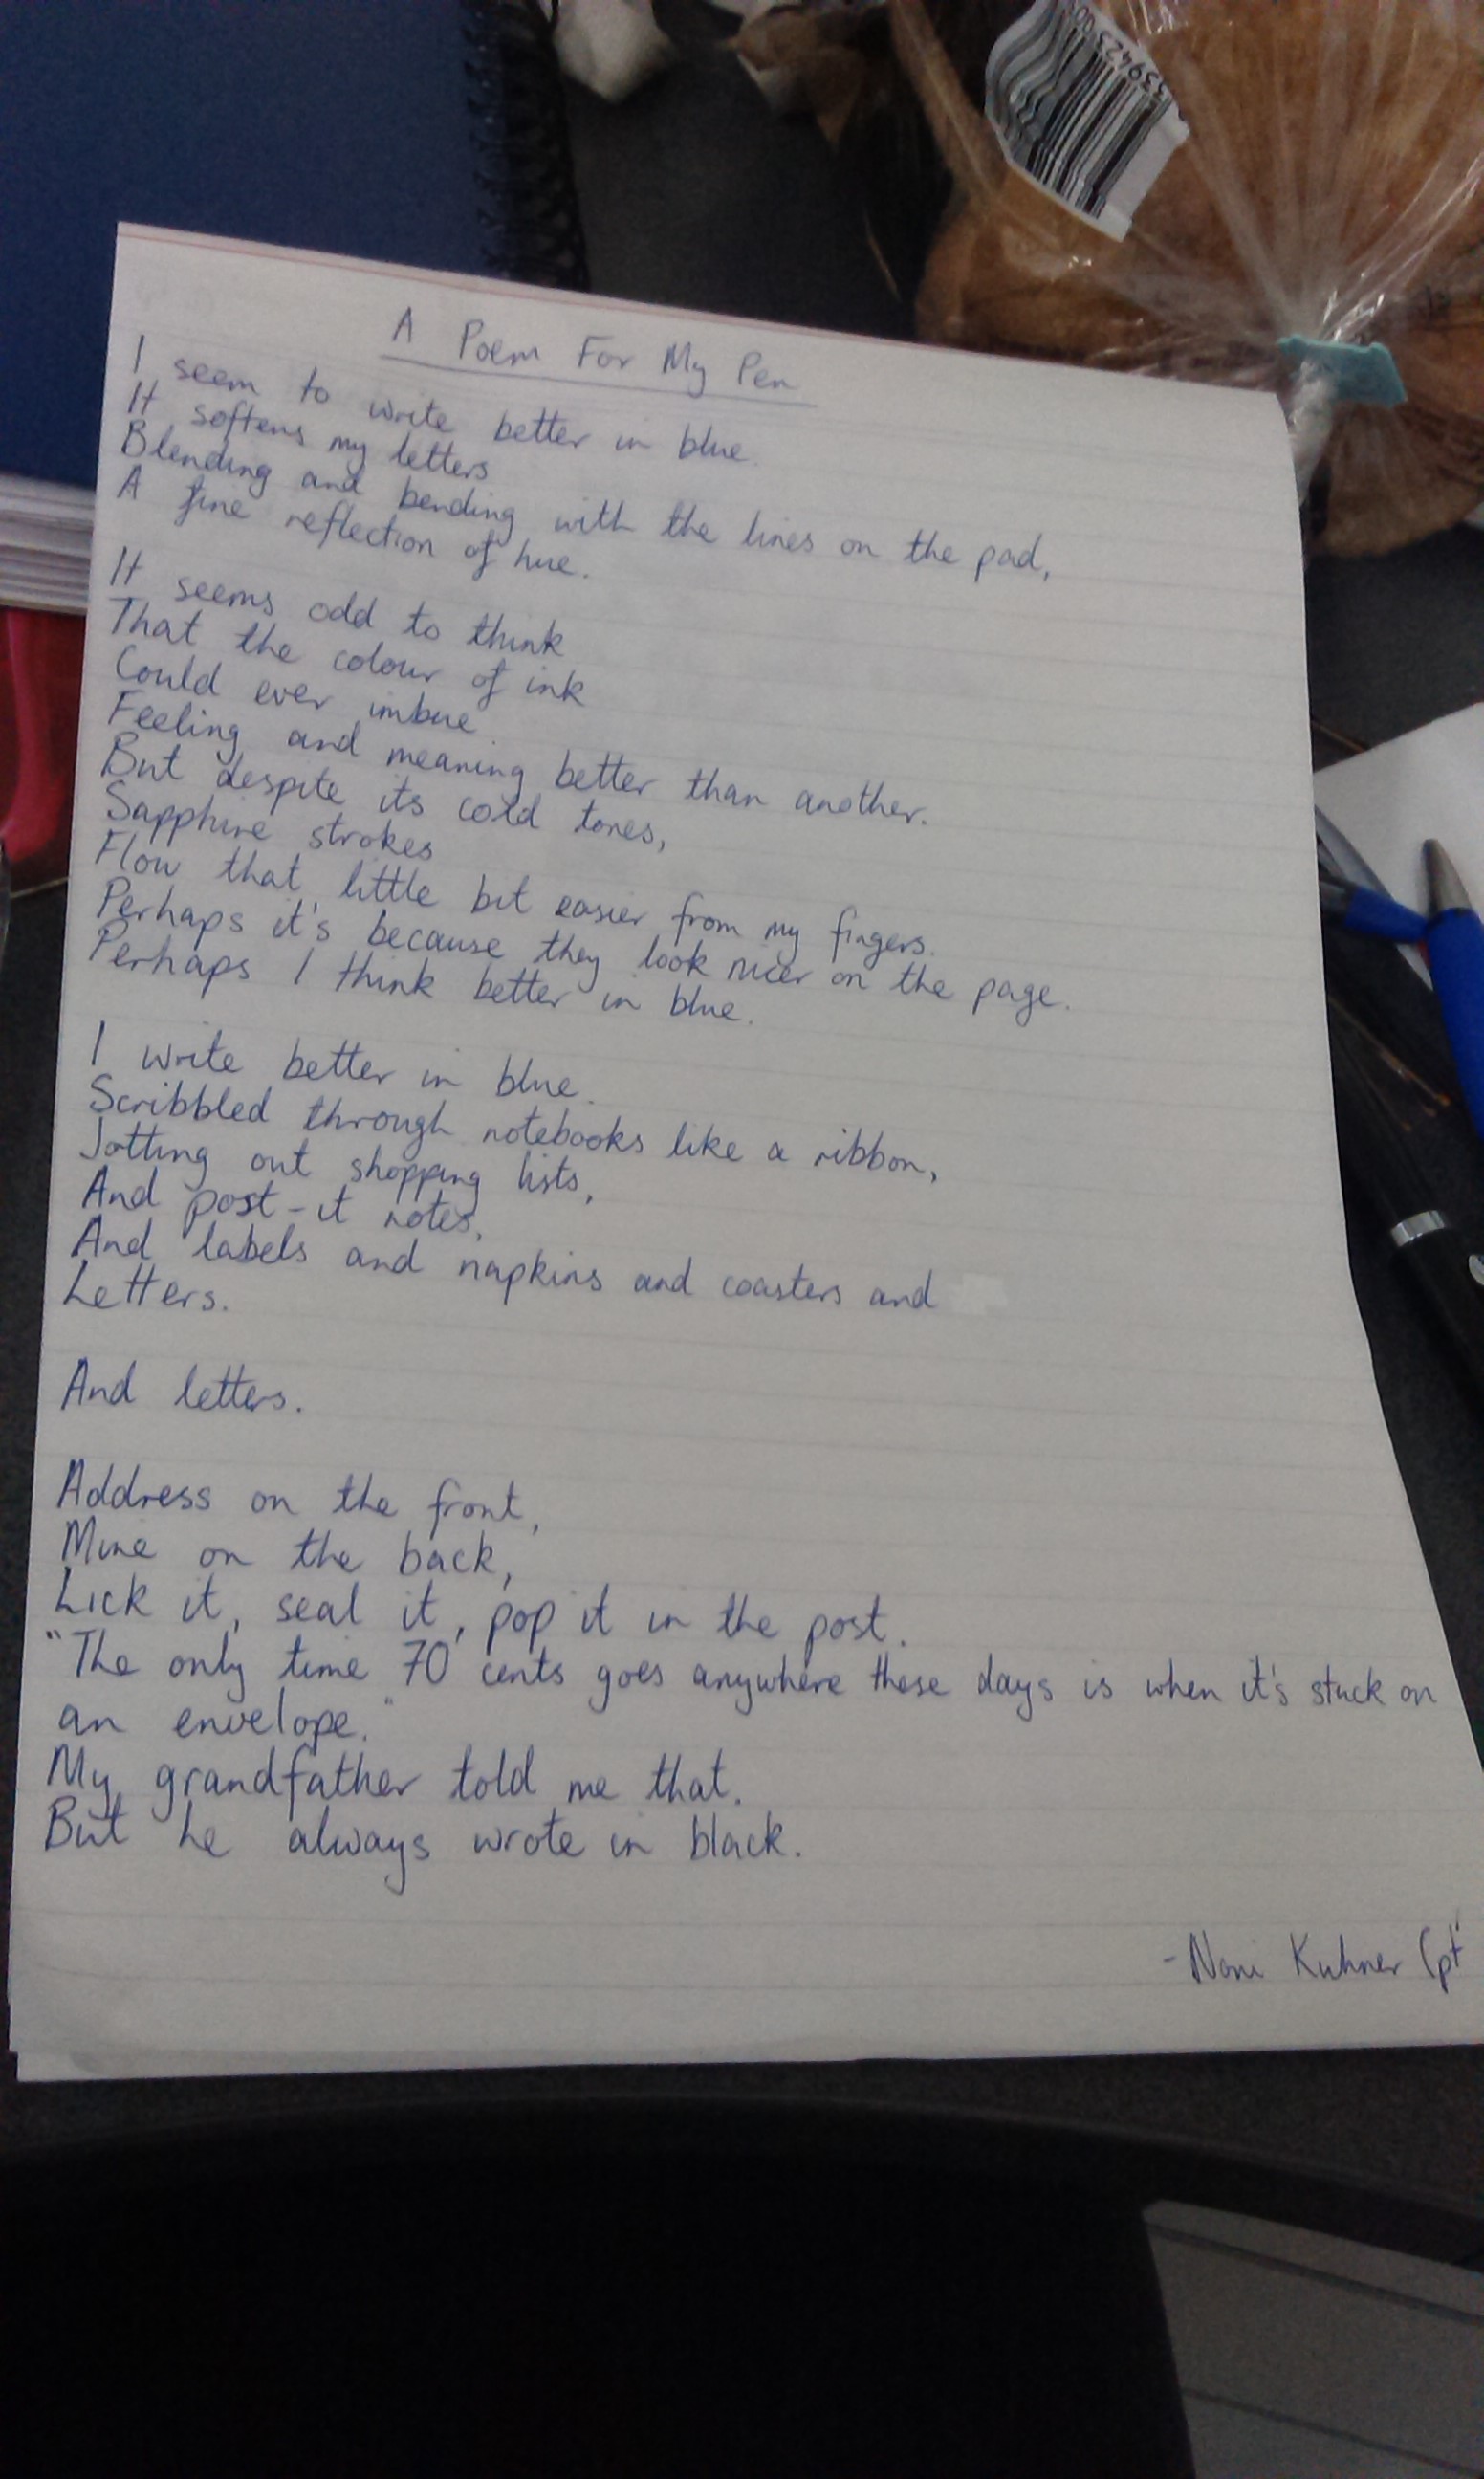 A Poem For My Pen
I seem to write better in blue.
It softens my letters
Blending and bending with the lines on the pad,
A fine reflection of hue.
It seems odd to think
That the colour of ink
Could ever imbue
Feeling and meaning better than another.
But despite its cold tones,
Sapphire strokes
Flow that little bit easier from my fingers.
Perhaps it's because they look nicer on the page.
Perhaps I think better in blue.
I write better in blue.
Scribbled through notebooks like a ribbon,
Jotting out shopping lists,
And post-it notes,
And labels and napkins and coasters and
Letters.
And letters.
Address on the front,
Mine on the back,
Lick it, seal it, pop it in the post.
"The only time 70 cents goes anywhere these days is when it's stuck on
an envelope."
My grandfather told me that.
But he always wrote in black.
- Noni Kuhner